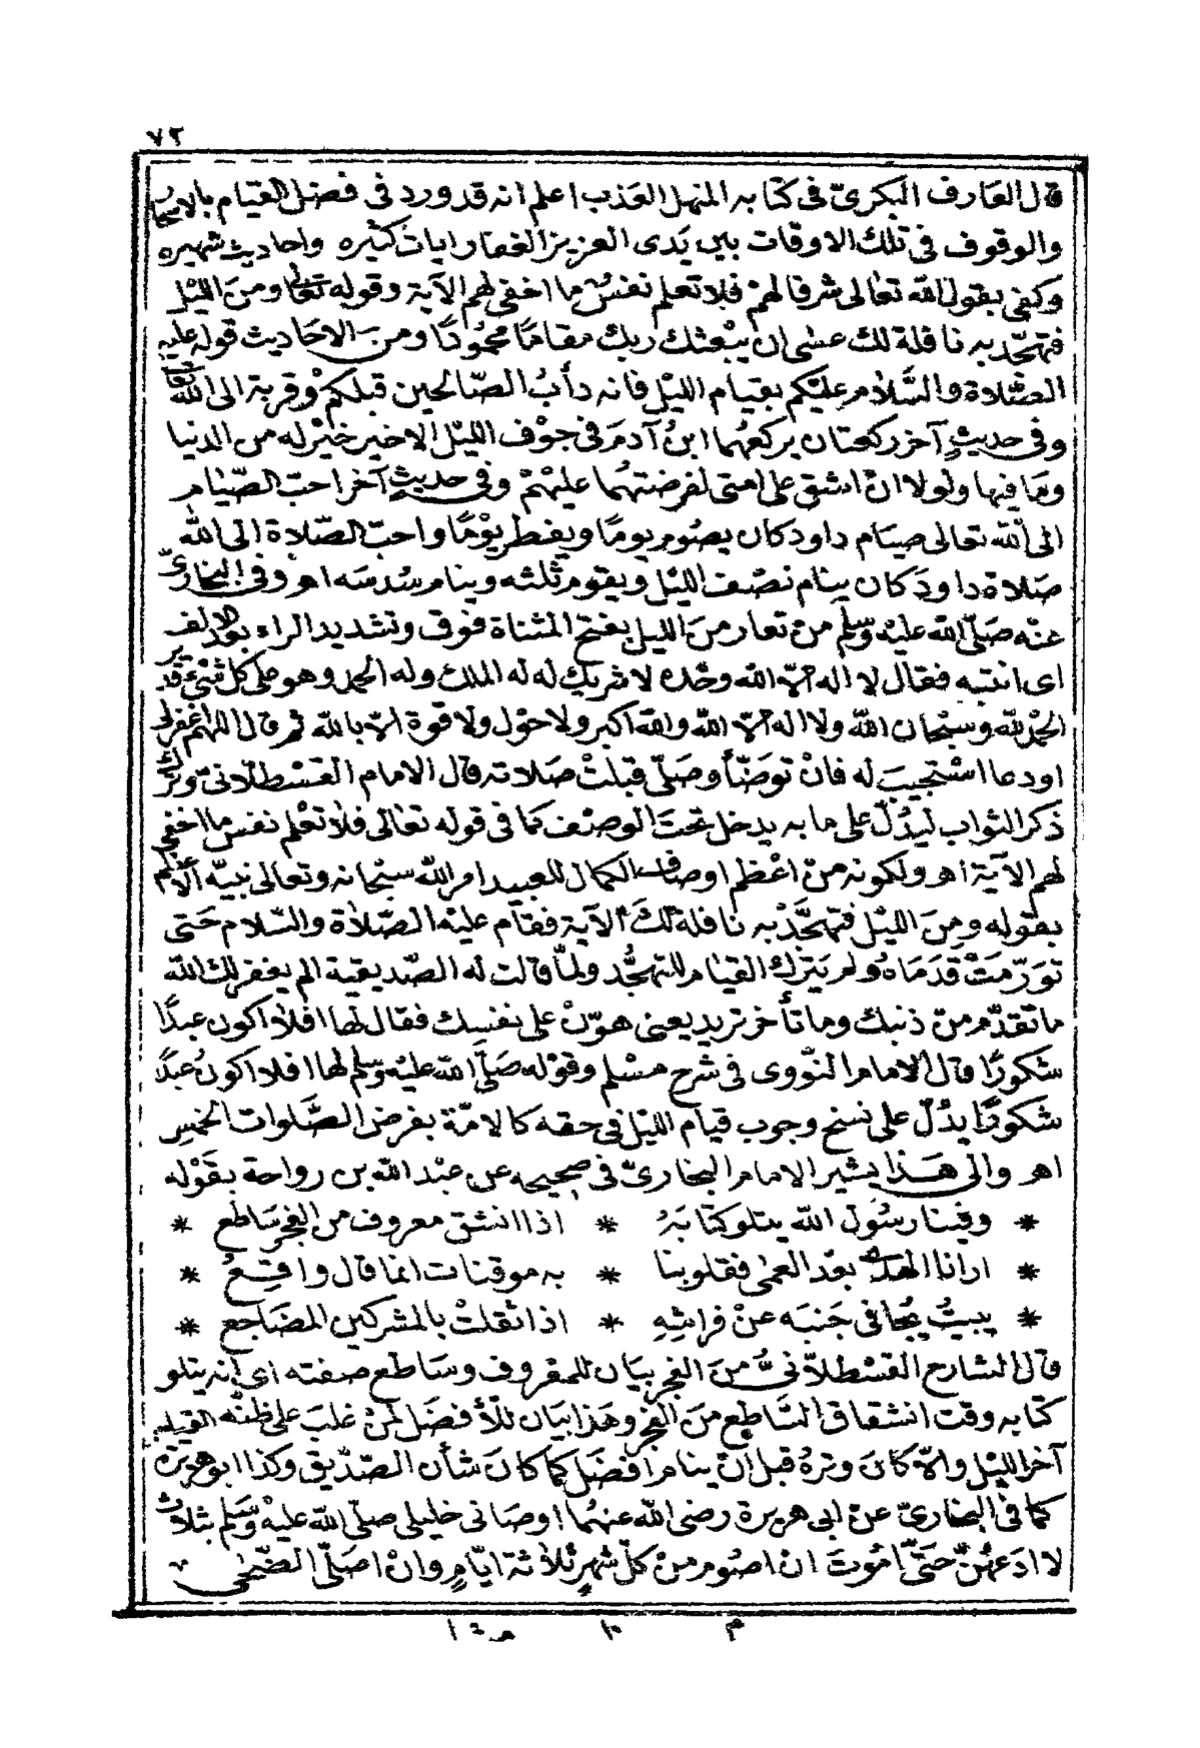 ٧٣
قال العارف البكرىّ فى كتابه المنهل العذب اعلم انه قد ورد فى فضل القيام بالاسحار
والوقوف فى تلك الاوقات بين يَدى العزيز الغفار ايات كثيره واحاديث شهيره
وكفى بقول الله تعالى شرفا لهمْ فلا تعلم نفسٌ ما اخفى لهم الآية وقوله تعالى ومنَ الليْل
فتهجّد به نافلة لك عسٰى ان يبْعثك ربك مقامًا محمُودًا ومن الاحَاديث قوله عليه
الصّلاة والسَّلام عليْكم بقيام الليْل فانه دأبُ الصّالحين قبلكمْ وقربة الى الله تعالى
وفى حديثٍ آخر ركعتان يركعهُما ابنُ آدمَ فى جوْف الليْل الاخير خيْر له من الدنيا
ومَا فيها ولولا انْ اشق على امتى لفرضتهُما عليْهمْ وفى حديثٍ آخر احبّ الصّيَام
الى الله تعالى صيَام داود كان يصُوم يومًا ويفطر يوْمًا واحبّ الصّلاة الى الله
صَلاة داودَ كان ينام نصْف الليْل ويقوم ثلثه وينام سُدسَه اهـ وفى البخارىّ
عنْه صَلّى الله عليْه وسَلم منْ تعار منَ الليل بفتح المثناة فوق وتشديد الراء بعد الالف
اى انتبه فقال لا اله الاّ الله وحْده لا شريك له له الملك وله الحمد وهو على كل شئ قدير
الحمْد لله وسبْحان اللهِ ولا اله الاّ الله والله اكبر ولا حوْل ولا قوة الاّ بالله ثم قال اللهمّ اغفر لى
اودعا اسْتجيبَ له فانْ توضّأ وصَلىّ قبلتْ صَلاته قال الامام القسْطلاّنىّ وترك
ذكر الثواب ليَدُلّ على ما به يدخل تحتَ الوصْف كما فى قوله تعالى فلا تعْلم نفس ما اخفى
لهم الآية اهـ ولكونه منْ اعْظم اوصاف الكمال للعبيد امر الله سبْحانه وتعالى نبيّه الاعظم
بقوله ومِنَ الليْل فتهجَّدْ به نافلة لكَ الآية فقام عليْه الصّلاة والسّلام حَتى
تورّمَتْ قدمَاهُ ولم يَترك القيام للتهجُّد ولمّا قالت له الصّديقية الم يغفر لك الله
ما تقدّم منْ ذنبك وما تأخر تريد يعنى هوّنْ على نفسِك فقال لها افلا اكون عبدًا
شكورًا قال الامام النّووى فى شرح مسْلم وقوْله صَلّى الله عليْه وسَلم لها افلا اكونُ عبدًا
شكورًا يدُلّ على نسخ وجوب قيام الليْل فى حقه كالامّة بفرض الصَّلوات الخمسِ
اهـ والى هَذا يشير الامام البخارىّ فى صحيحه عن عبْد الله بن رواحة بقَوْله
* وفينا رسُول الله يتلو كتابَهُ * اذا انشق معروف من الفجر سَاطع *
* ارانا الهدى بعْد العمٰى فقلوبنا * به موقنات انما قال واقِعُ *
* يبيتُ يجُافى جَنبَه عنْ فراشِهِ * اذا ثقلتْ بالمشركين المضَاجع *
قال الشارح القسْطلاّنىُّ منَ الفجر بيَان للمعروف وسَاطع صفته اى انه يتلو
كتابه وقت انشقاق السَّاطع منَ الفجر وهذا بيَان للأفضَل لمنْ غلبَ على ظنّه القيام
آخر الليْل والاّ كانَ وترهُ قبل انْ ينام افضَل كما كانَ شأن الصّدّيق وكذا ابو هريْرة
كما فى البخارىّ عنْ ابى هريرة رضى الله عنهُما اوصَانى خليلى صلّى الله عليْه وسَلم بثلاث
لا ادَعهُنّ حَتّى امُوتَ انْ اصُوم منْ كلّ شهرٍ ثلاثة ايّامٍ وانْ اصَلّى الضّحٰى
م ١٠